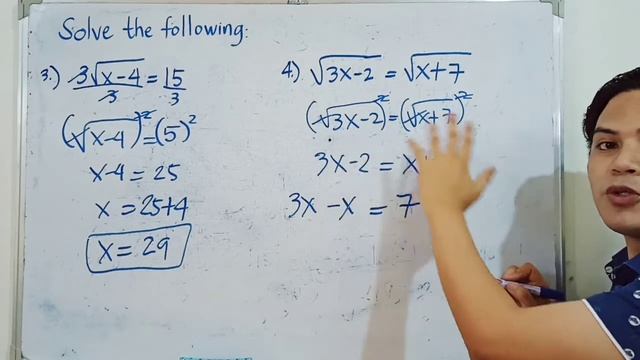 Solve the following:
3.) 3√(x-4) = 15
3 3
(√(x-4))² = (5)²
x-4 = 25
x = 25+4
x = 29
4.) √(3x-2) = √(x+7)
(√(3x-2))² = (√(x+7))²
3x-2 = x
3x - x = 7